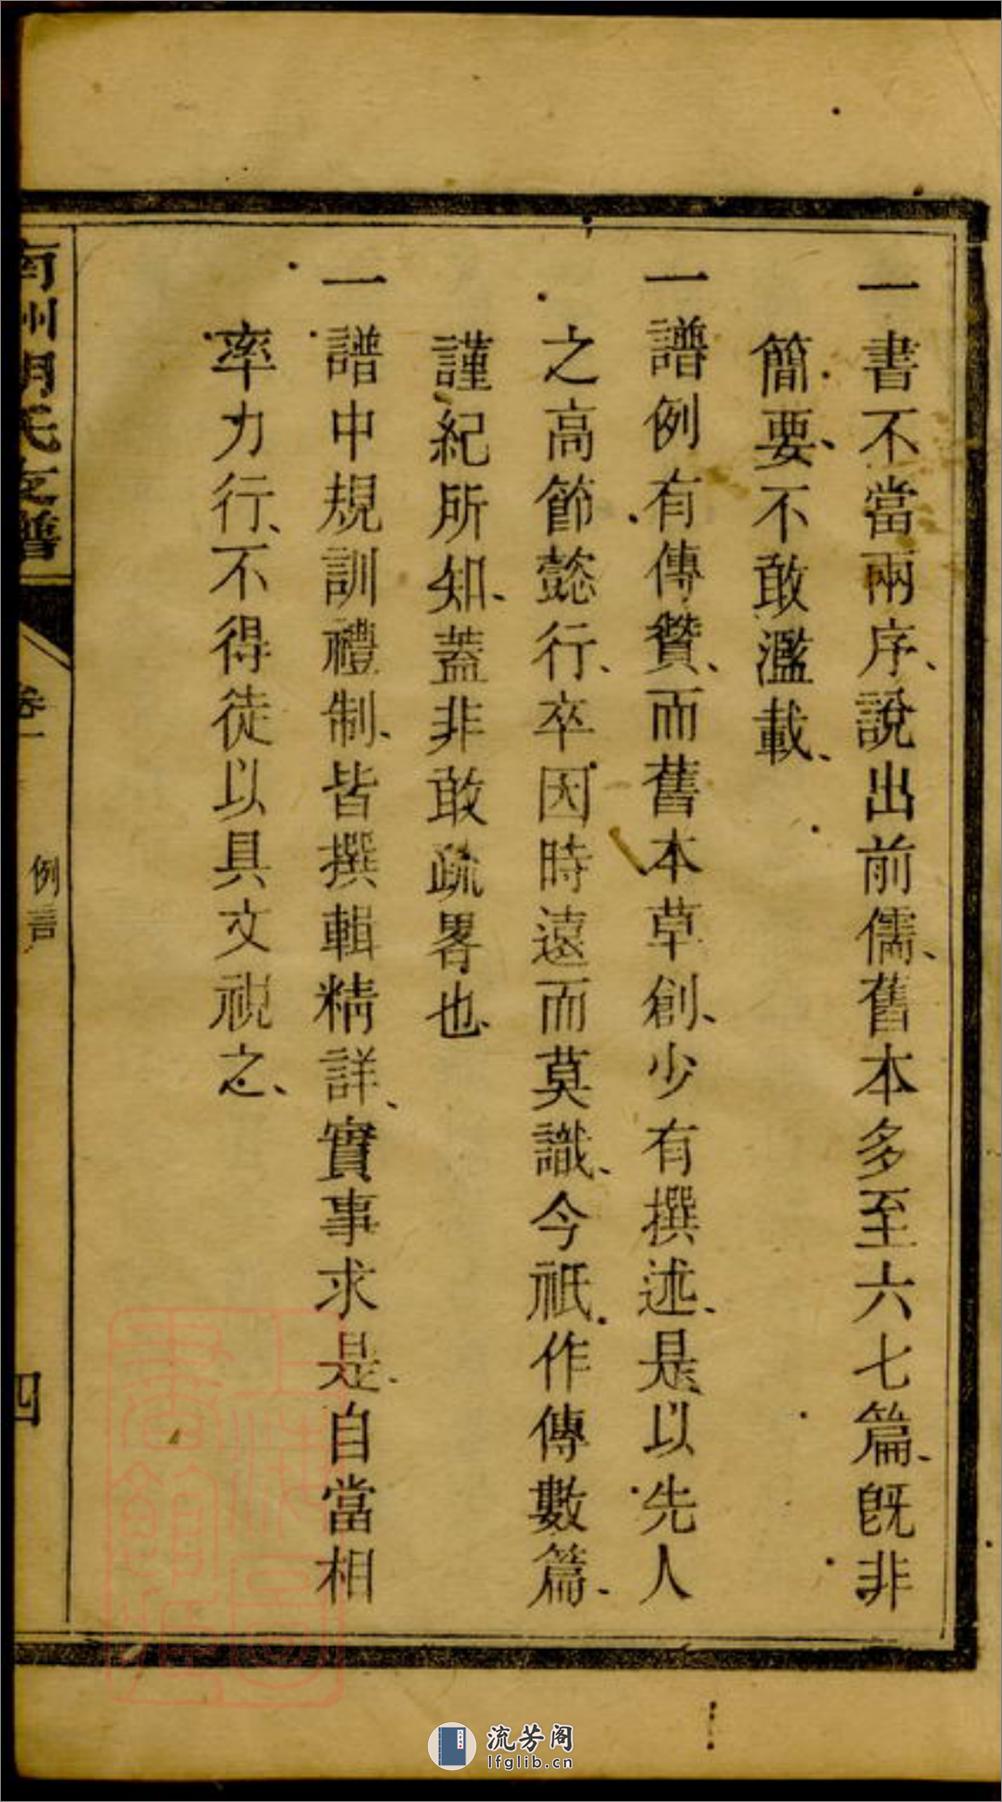 一書不當兩序、說出前儒、舊本多至六七篇、旣非
簡要、不敢濫載、
一譜例有傳贊、而舊本草創、少有撰述、是以先人
之高節懿行、卒因時遠而莫識、今祇作傳數篇、
謹紀所知、蓋非敢疏畧也、
一譜中規訓禮制、皆撰輯精詳、實事求是、自當相
率力行、不得徒以具文視之、
南州胡氏支譜
卷一
例言
四
上海圖
書館藏
流芳阁
lfglib.cn